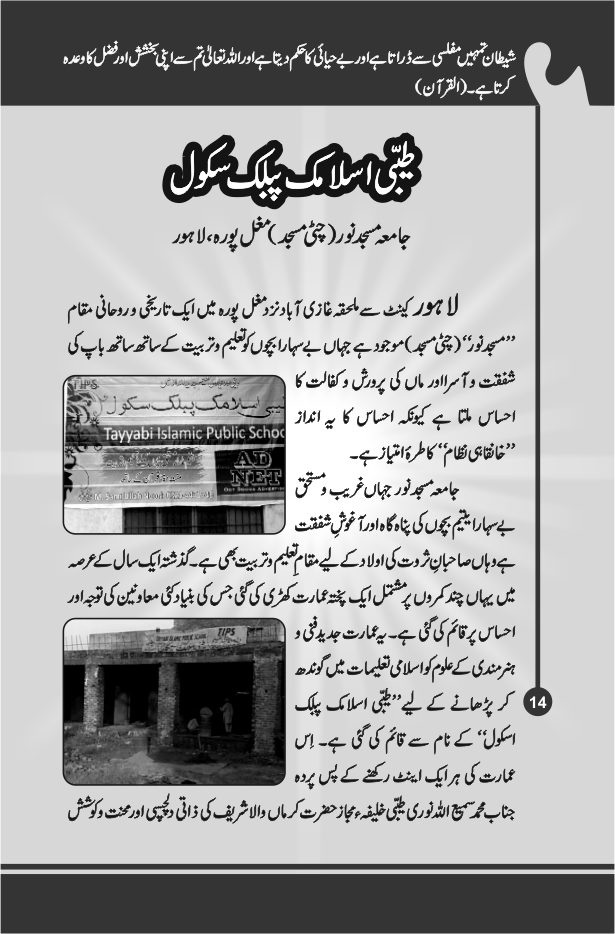 شیطان تمہیں مفلسی سے ڈراتا ہے اور بے حیائی کا حکم دیتا ہے اور اللہ تعالیٰ تم سے اپنی بخشش اور فضل کا وعدہ
کرتا ہے۔ (القرآن)
طیّبی اسلامک پبلک سکول
جامعہ مسجد نور (چٹی مسجد) مغل پورہ، لاہور
لاہور کینٹ سے ملحقہ غازی آباد نزد مغل پورہ میں ایک تاریخی و روحانی مقام
”مسجد نور“ (چٹی مسجد) موجود ہے جہاں بے سہارا بچوں کو تعلیم و تربیت کے ساتھ ساتھ باپ کی
شفقت و آسرا اور ماں کی پرورش و کفالت کا
احساس ملتا ہے کیونکہ احساس کا یہ انداز
”خانقاہی نظام“ کا طرۂ امتیاز ہے۔
جامعہ مسجد نور جہاں غریب و مستحق
بے سہارا یتیم بچوں کی پناہ گاہ اور آغوشِ شفقت
ہے وہاں صاحبانِ ثروت کی اولاد کے لیے مقامِ تعلیم و تربیت بھی ہے۔ گذشتہ ایک سال کے عرصہ
میں یہاں چند کمروں پر مشتمل ایک پختہ عمارت کھڑی کی گئی جس کی بنیاد کئی معاونین کی توجہ اور
احساس پر قائم کی گئی ہے۔ یہ عمارت جدید فنی و
ہنرمندی کے علوم کو اسلامی تعلیمات میں گوندھ
کر پڑھانے کے لیے ”طیّبی اسلامک پبلک
اسکول“ کے نام سے قائم کی گئی ہے۔ اِس
عمارت کی ہر ایک اینٹ رکھنے کے پس پردہ
جناب محمد سمیع اللہ نوری طیّبی خلیفہء مجاز حضرت کرماں والا شریف کی ذاتی دلچسپی اور محنت و کوشش
T.I.P.S
طیبی اسلامک پبلک سکول
Tayyabi Islamic Public School
AD
NET
TIPS
14